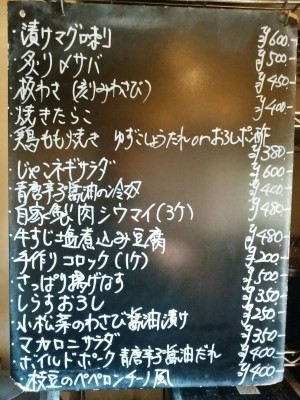 漬けマグロ刺 ¥600-
炙り〆サバ ¥500-
板わさ(刻みわさび) ¥450-
焼きたらこ ¥400-
鶏ももり焼き ゆずこしょうたれorおろしポン酢 ¥380-
じゃこネギサラダ ¥600
青唐辛子醤油の冷奴 ¥400
自家製肉シウマイ(3ケ) ¥480
牛すじ塩煮込み豆腐 ¥480-
手作りコロッケ(1ケ) ¥200-
さっぱり揚げなす ¥500
しらすおろし ¥350
小松菜のわさび醤油漬け ¥250-
マカロニサラダ ¥350
ボイルドポーク 青唐辛子醤油だれ ¥400
枝豆のペペロンチーノ風 ¥400